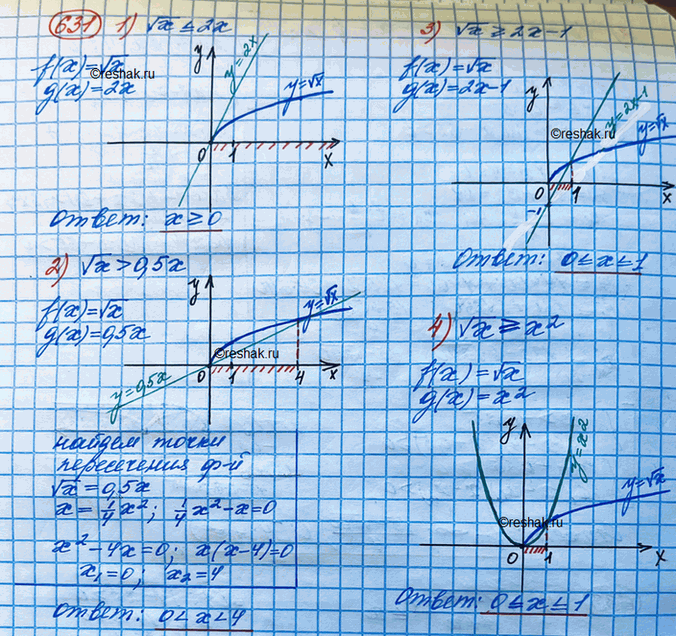 631 1) √x ≤ 2x
f(x)=√x
g(x)=2x
©reshak.ru
y
y=2x
y=√x
0 1 x
ответ: x ≥ 0
2) √x > 0,5x
f(x)=√x
g(x)=0,5x
y
y=√x
©reshak.ru
y=0,5x
0 1 4 x
найдем точки
пересечения ф-й
√x = 0,5x
x = 1/4 x²; 1/4 x² - x = 0
x² - 4x = 0; x(x-4)=0
x₁=0; x₂=4
ответ: 0 < x < 4
3) √x ≥ 2x-1
f(x)=√x
g(x)=2x-1
y
y=2x-1
©reshak.ru
y=√x
0 1 x
-1
Ответ: 0 ≤ x ≤ 1
4) √x ≥ x²
f(x)=√x
g(x)=x²
y
y=x2
y=√x
©reshak.ru
0 1 x
Ответ: 0 ≤ x ≤ 1